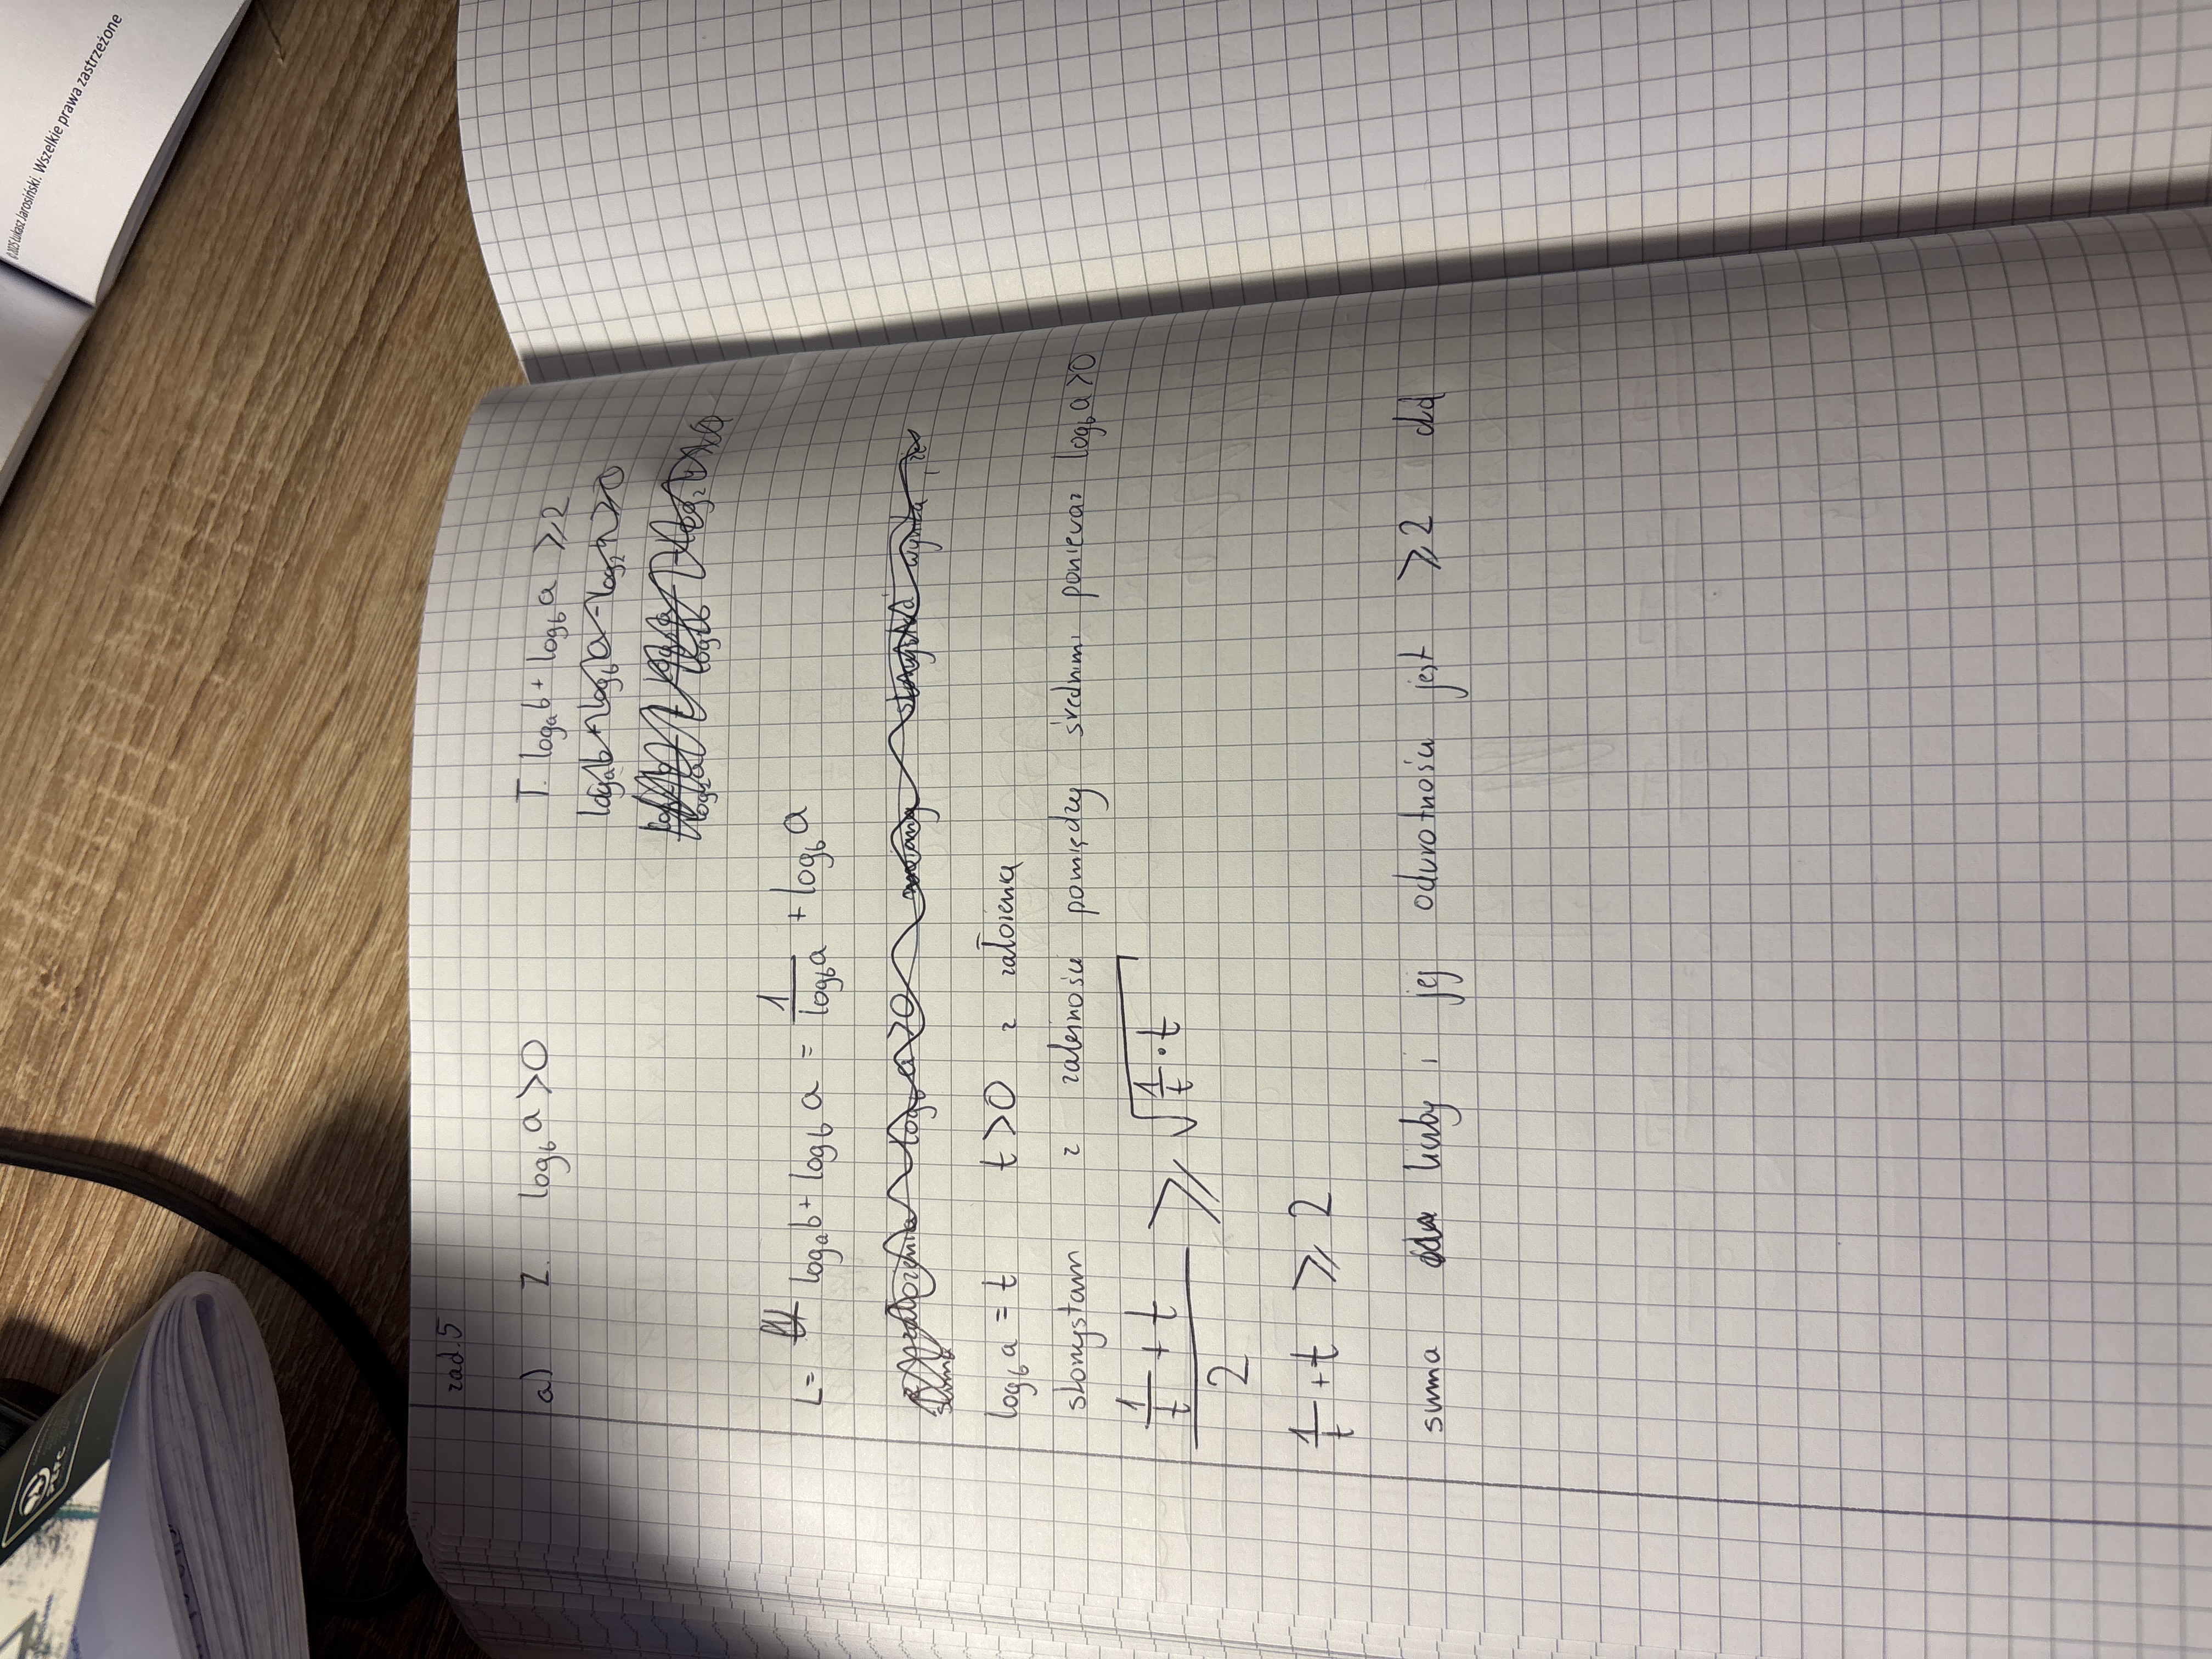 ©2025 Łukasz Jarosiński. Wszelkie prawa zastrzeżone
zad.5
a) Z. log_b a > 0 T. log_a b + log_b a ⩾ 2
log_a b + log_b a - log_2 a ⩾ 0
L = log_a b + log_b a = 1/log_b a + log_b a
założenia log_b a > 0 wynika, że
log_b a = t t > 0 z założenia
skorzystam z zależności pomiędzy średnimi ponieważ log_b a > 0
(1/t + t)/2 ⩾ √(1/t · t)
1/t + t ⩾ 2
suma liczby i jej odwrotności jest ⩾ 2 dd